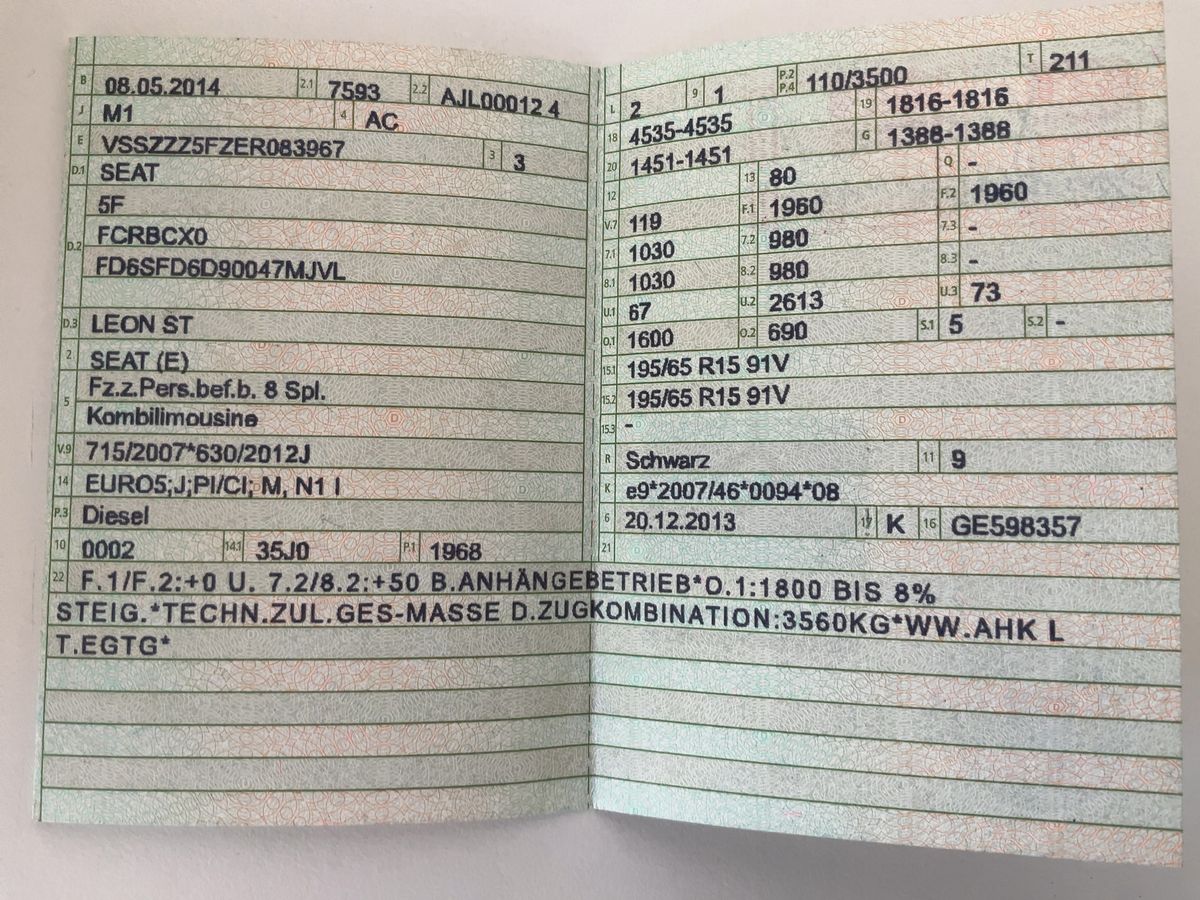 B 08.05.2014 2.1 7593 2.2 AJL00012 4
J M1 4 AC
E VSSZZZ5FZER083967 3 3
D.1 SEAT
5F
D.2 FCRBCX0
FD6SFD6D90047MJVL
D.3 LEON ST
2 SEAT (E)
5 Fz.z.Pers.bef.b. 8 Spl.
Kombilimousine
V.9 715/2007*630/2012J
14 EURO5;J;PI/CI; M, N1 I
P.3 Diesel
10 0002 14.1 35J0 P.1 1968
L 2 9 1 P.2 P.4 110/3500 T 211
18 4535-4535 19 1816-1816
20 1451-1451 G 1388-1388
12 13 80 Q -
V.7 119 F.1 1960 F.2 1960
7.1 1030 7.2 980 7.3 -
8.1 1030 8.2 980 8.3 -
U.1 67 U.2 2613 U.3 73
O.1 1600 O.2 690 S.1 5 S.2 -
15.1 195/65 R15 91V
15.2 195/65 R15 91V
15.3 -
R Schwarz 11 9
K e9*2007/46*0094*08
6 20.12.2013 17 K 16 GE598357
21
22 F.1/F.2:+0 U. 7.2/8.2:+50 B.ANHÄNGEBETRIEB*O.1:1800 BIS 8%
STEIG.*TECHN.ZUL.GES-MASSE D.ZUGKOMBINATION:3560KG*WW.AHK L
T.EGTG*